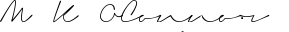 M K O'Connor